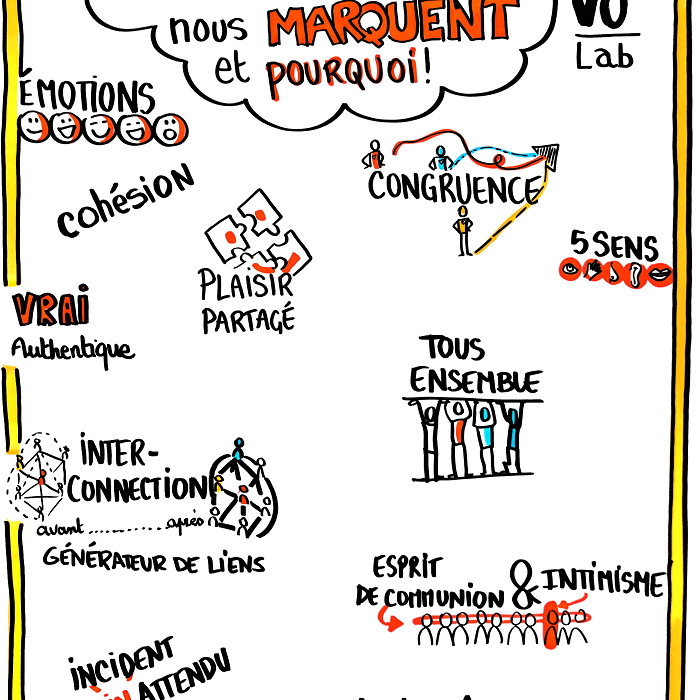 nous MARQUENT
et POURQUOI !
VO
Lab
ÉMOTIONS
cohésion
CONGRUENCE
5 SENS
PLAISIR
PARTAGÉ
VRAI
Authentique
TOUS
ENSEMBLE
INTER-
CONNECTION
avant ............... après
GÉNÉRATEUR DE LIENS
ESPRIT
DE COMMUNION & INTIMISME
INCIDENT
INATTENDU